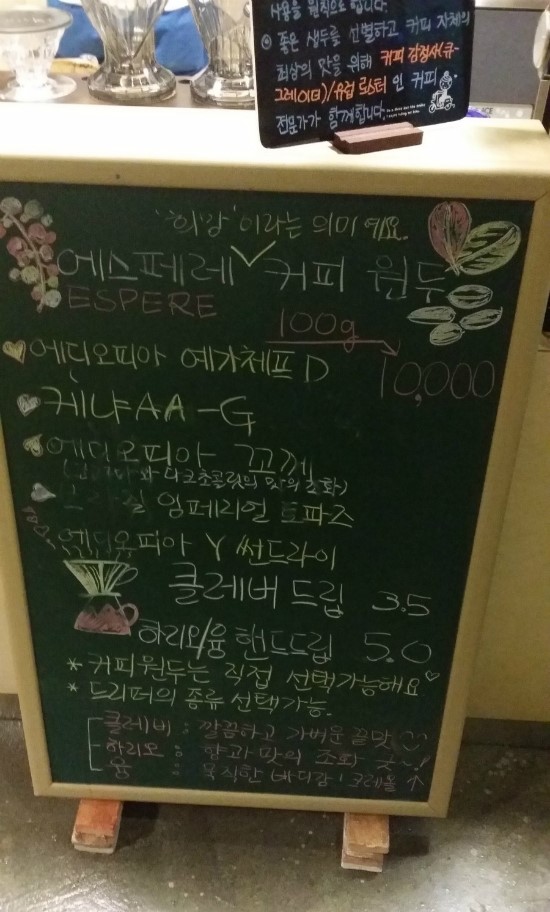 사용을 원칙으로 합니다.
좋은 생두를 선별하고 커피 자체의
최상의 맛을 위해 커피 감정사(큐-
그레이더)/유럽 로스터 인 커피
전문가가 함께합니다.
'희망'이라는 의미예요.
에스페레 커피 원두
ESPERE
100g
10,000
에디오피아 예가체프 D
케냐AA-G
에디오피아 꼬께
다크초콜릿의 맛의 조화)
임페리얼 토파즈
에디오피아 Y 썬드라이
클레버 드립 3.5
하리오/융 핸드드립 5.0
*커피원두는 직접 선택가능해요♡
*드리퍼의 종류 선택가능.
클레버 : 깔끔하고 가벼운 끝맛
하리오 : 향과 맛의 조화
융 : 묵직한 바디감! 크레올 ↑